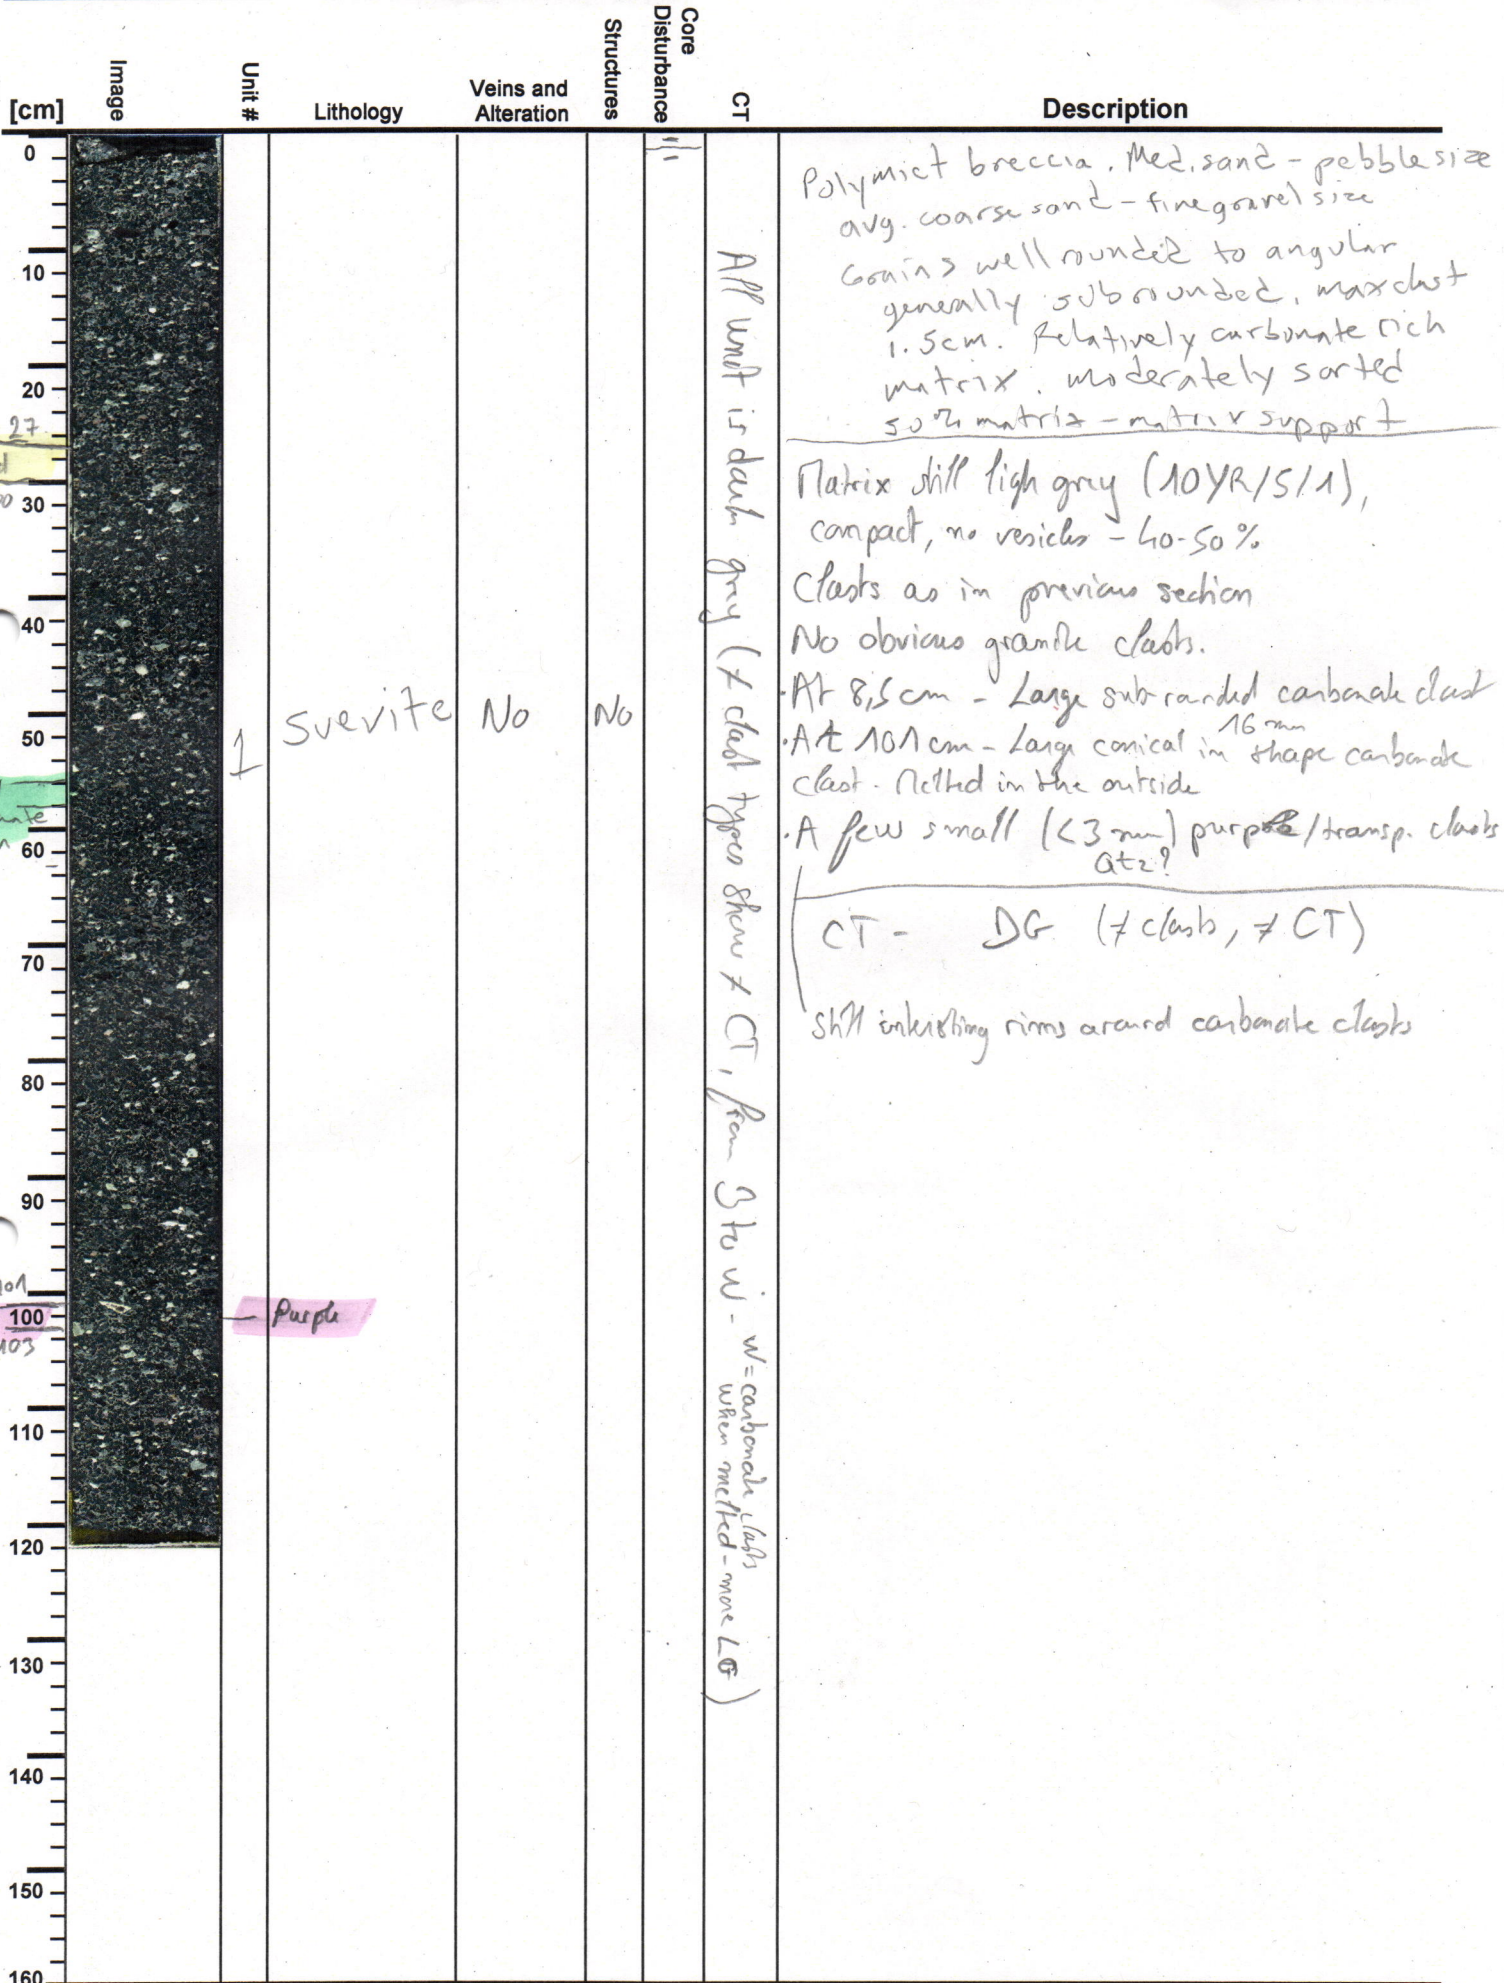 [cm]
Image
Unit #
Lithology
Veins and
Alteration
Structures
Core
Disturbance
CT
Description
0
10
20
27
30
40
50
60
70
80
90
101
100
103
110
120
130
140
150
160
1
Suevite
No
No
Purple
All unit is dark grey (≠ clast types show ≠ CT, from to W - W = carbonate clasts
when melted - more LG)
Polymict breccia. Med. sand - pebble size
avg. coarse sand - fine gravel size
Grains well rounded to angular
generally subrounded, max clast
1.5cm. Relatively carbonate rich
matrix. Moderately sorted
50% matrix - matrix support
Matrix still ligh grey (10YR/5/1),
compact, no vesicles - 40-50%
Clasts as in previous section
No obvious granite clasts.
· At 8,5 cm - Large sub rounded carbonate clast
16 mm
· At 101 cm - Large conical in shape carbonate
clast. Melted in the outside
· A few small (<3 mm) purple/transp. clasts
Qtz?
CT - DG (≠ clasts, ≠ CT)
Still rims around carbonate clasts